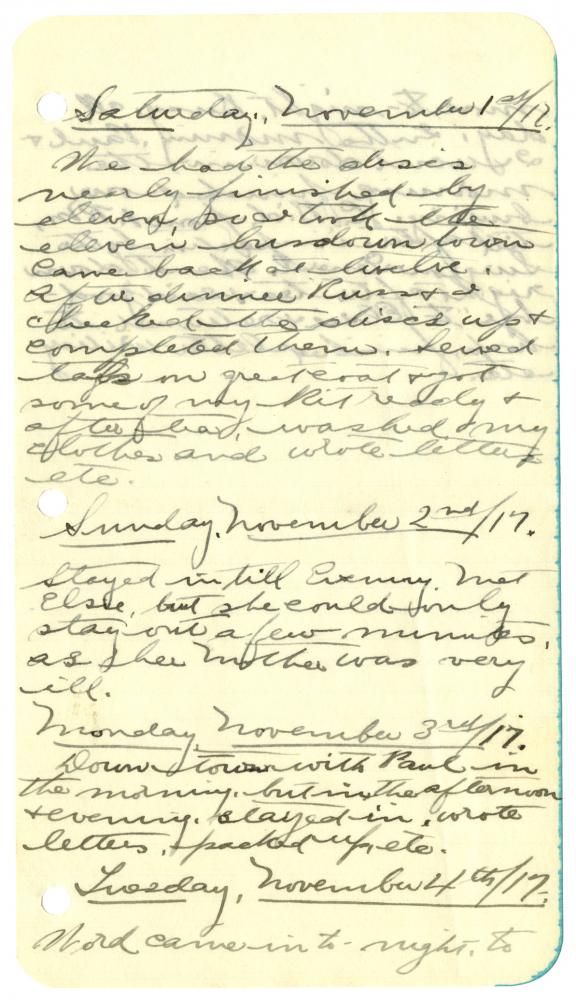 Saturday, November 1st/17.
We had the discs
nearly finished by
eleven, so I took the
eleven busdown town
came back at twelve.
After dinner Russ & I
checked the discs up &
completed them. Sewed
tags on great coat & got
some of my Kit ready &
after tea, washed my
clothes and wrote letters
etc.
Sunday, November 2nd/17.
Stayed in till Evening. Met
Elsie, but she could only
stay out a few minutes,
as her Mother was very
ill.
Monday, November 3rd/17.
Down town with Paul in
the morning, but in the afternoon
& evening stayed in, wrote
letters, & packed up, etc.
Tuesday, November 4th/17.
Word came in to-night, to